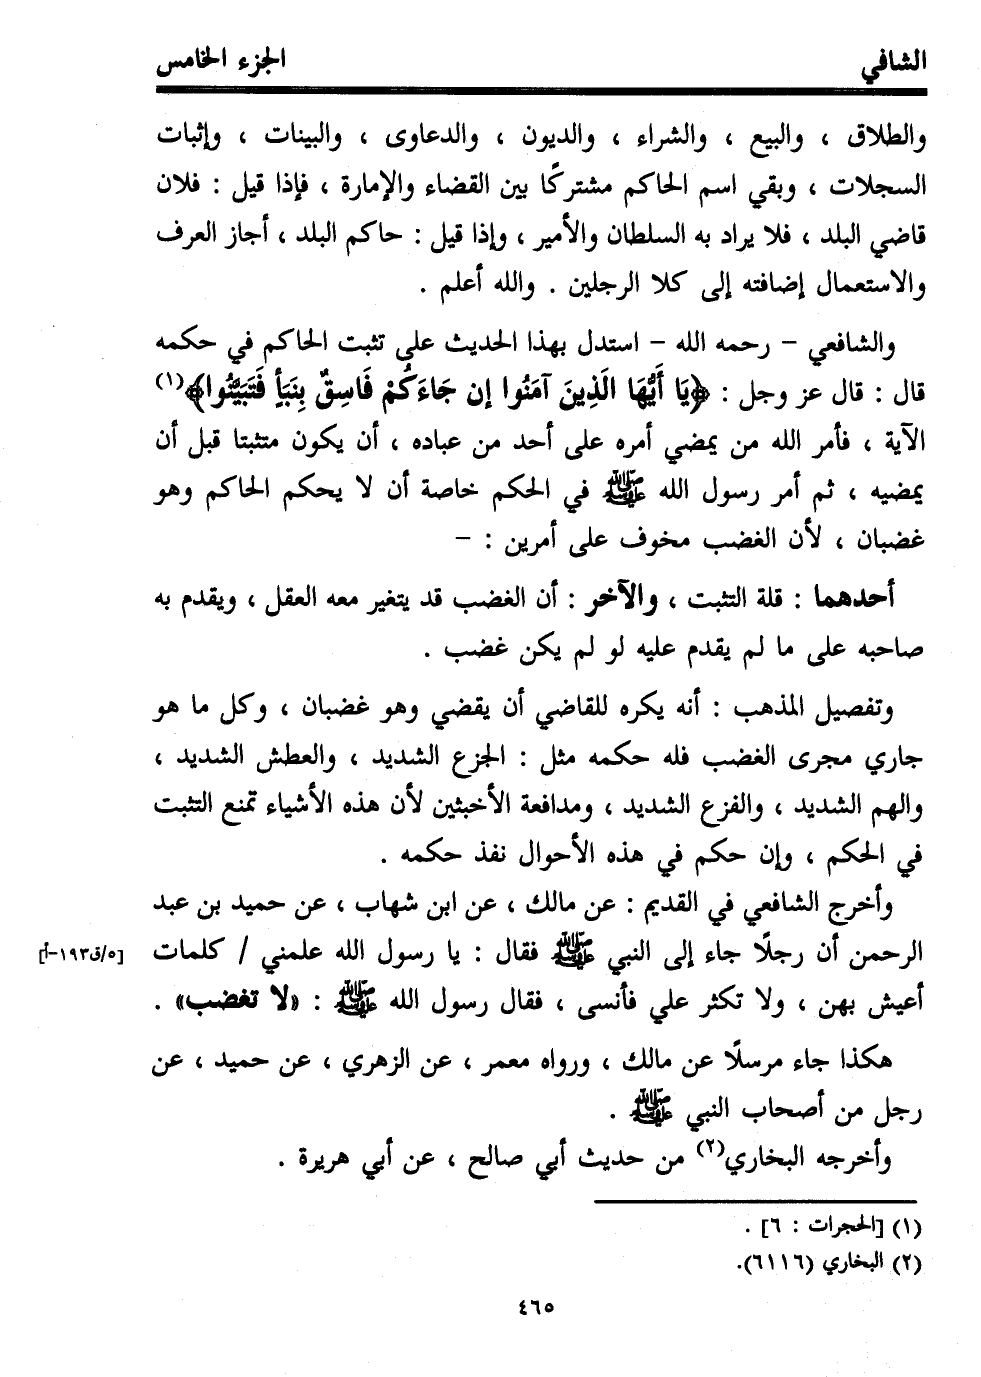 الشافي الجزء الخامس
والطلاق ، والبيع ، والشراء ، والديون ، والدعاوى ، والبينات ، وإثبات
السجلات ، وبقي اسم الحاكم مشتركًا بين القضاء والإمارة ، فإذا قيل : فلان
قاضي البلد ، فلا يراد به السلطان والأمير ، وإذا قيل : حاكم البلد ، أجاز العرف
والاستعمال إضافته إلى كلا الرجلين . والله أعلم .
والشافعي – رحمه الله – استدل بهذا الحديث على تثبت الحاكم في حكمه
قال : قال عز وجل : ﴿يَا أَيُّهَا الَّذِينَ آمَنُوا إِن جَاءَكُمْ فَاسِقٌ بِنَبَأٍ فَتَبَيَّنُوا﴾(١)
الآية ، فأمر الله من يمضي أمره على أحد من عباده ، أن يكون متثبتا قبل أن
يمضيه ، ثم أمر رسول الله ﷺ في الحكم خاصة أن لا يحكم الحاكم وهو
غضبان ، لأن الغضب مخوف على أمرين : –
أحدهما : قلة التثبت ، والآخر : أن الغضب قد يتغير معه العقل ، ويقدم به
صاحبه على ما لم يقدم عليه لو لم يكن غضب .
وتفصيل المذهب : أنه يكره للقاضي أن يقضي وهو غضبان ، وكل ما هو
جاري مجرى الغضب فله حكمه مثل : الجزع الشديد ، والعطش الشديد ،
والهم الشديد ، والفزع الشديد ، ومدافعة الأخبثين لأن هذه الأشياء تمنع التثبت
في الحكم ، وإن حكم في هذه الأحوال نفذ حكمه .
وأخرج الشافعي في القديم : عن مالك ، عن ابن شهاب ، عن حميد بن عبد
الرحمن أن رجلًا جاء إلى النبي ﷺ فقال : يا رسول الله علمني / كلمات [٥/ق١٩٣-أ]
أعيش بهن ، ولا تكثر علي فأنسى ، فقال رسول الله ﷺ : «لا تغضب» .
هكذا جاء مرسلًا عن مالك ، ورواه معمر ، عن الزهري ، عن حميد ، عن
رجل من أصحاب النبي ﷺ .
وأخرجه البخاري(٢) من حديث أبي صالح ، عن أبي هريرة .
(١) [الحجرات : ٦] .
(٢) البخاري (٦١١٦).
٤٦٥